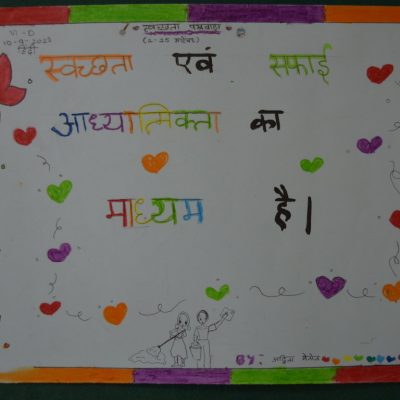 VI-D
10-9-2023
हिंदी
स्वच्छता पखवाड़ा
स्वच्छता एवं सफाई
आध्यात्मिकता का
माध्यम है।
By: